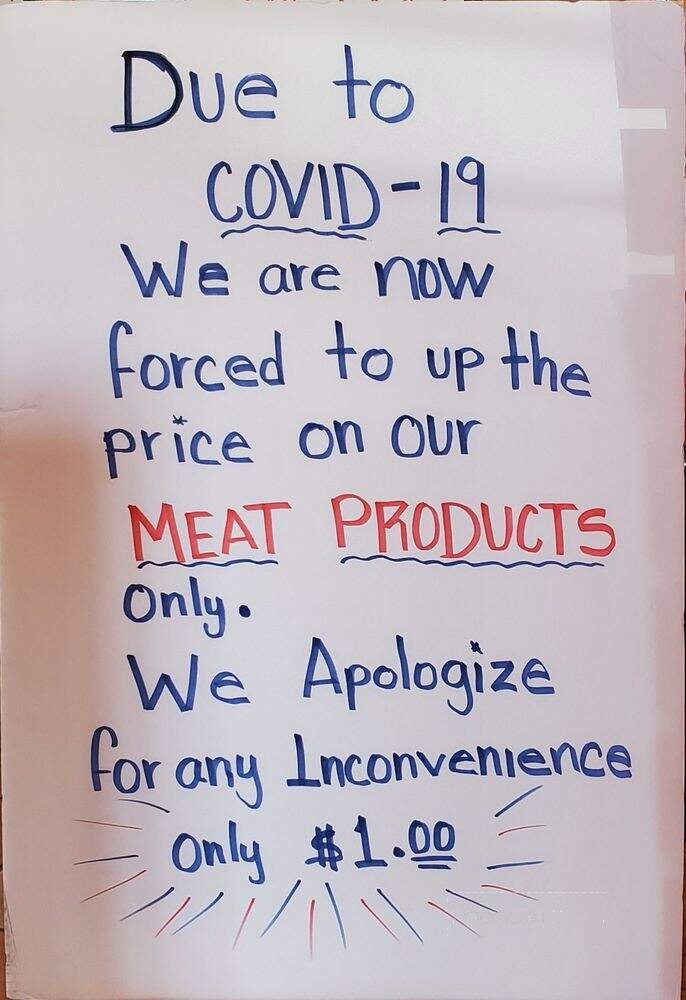 Due to
COVID-19
We are now
forced to up the
price on our
MEAT PRODUCTS
only.
We Apologize
for any Inconvenience
only $1.00